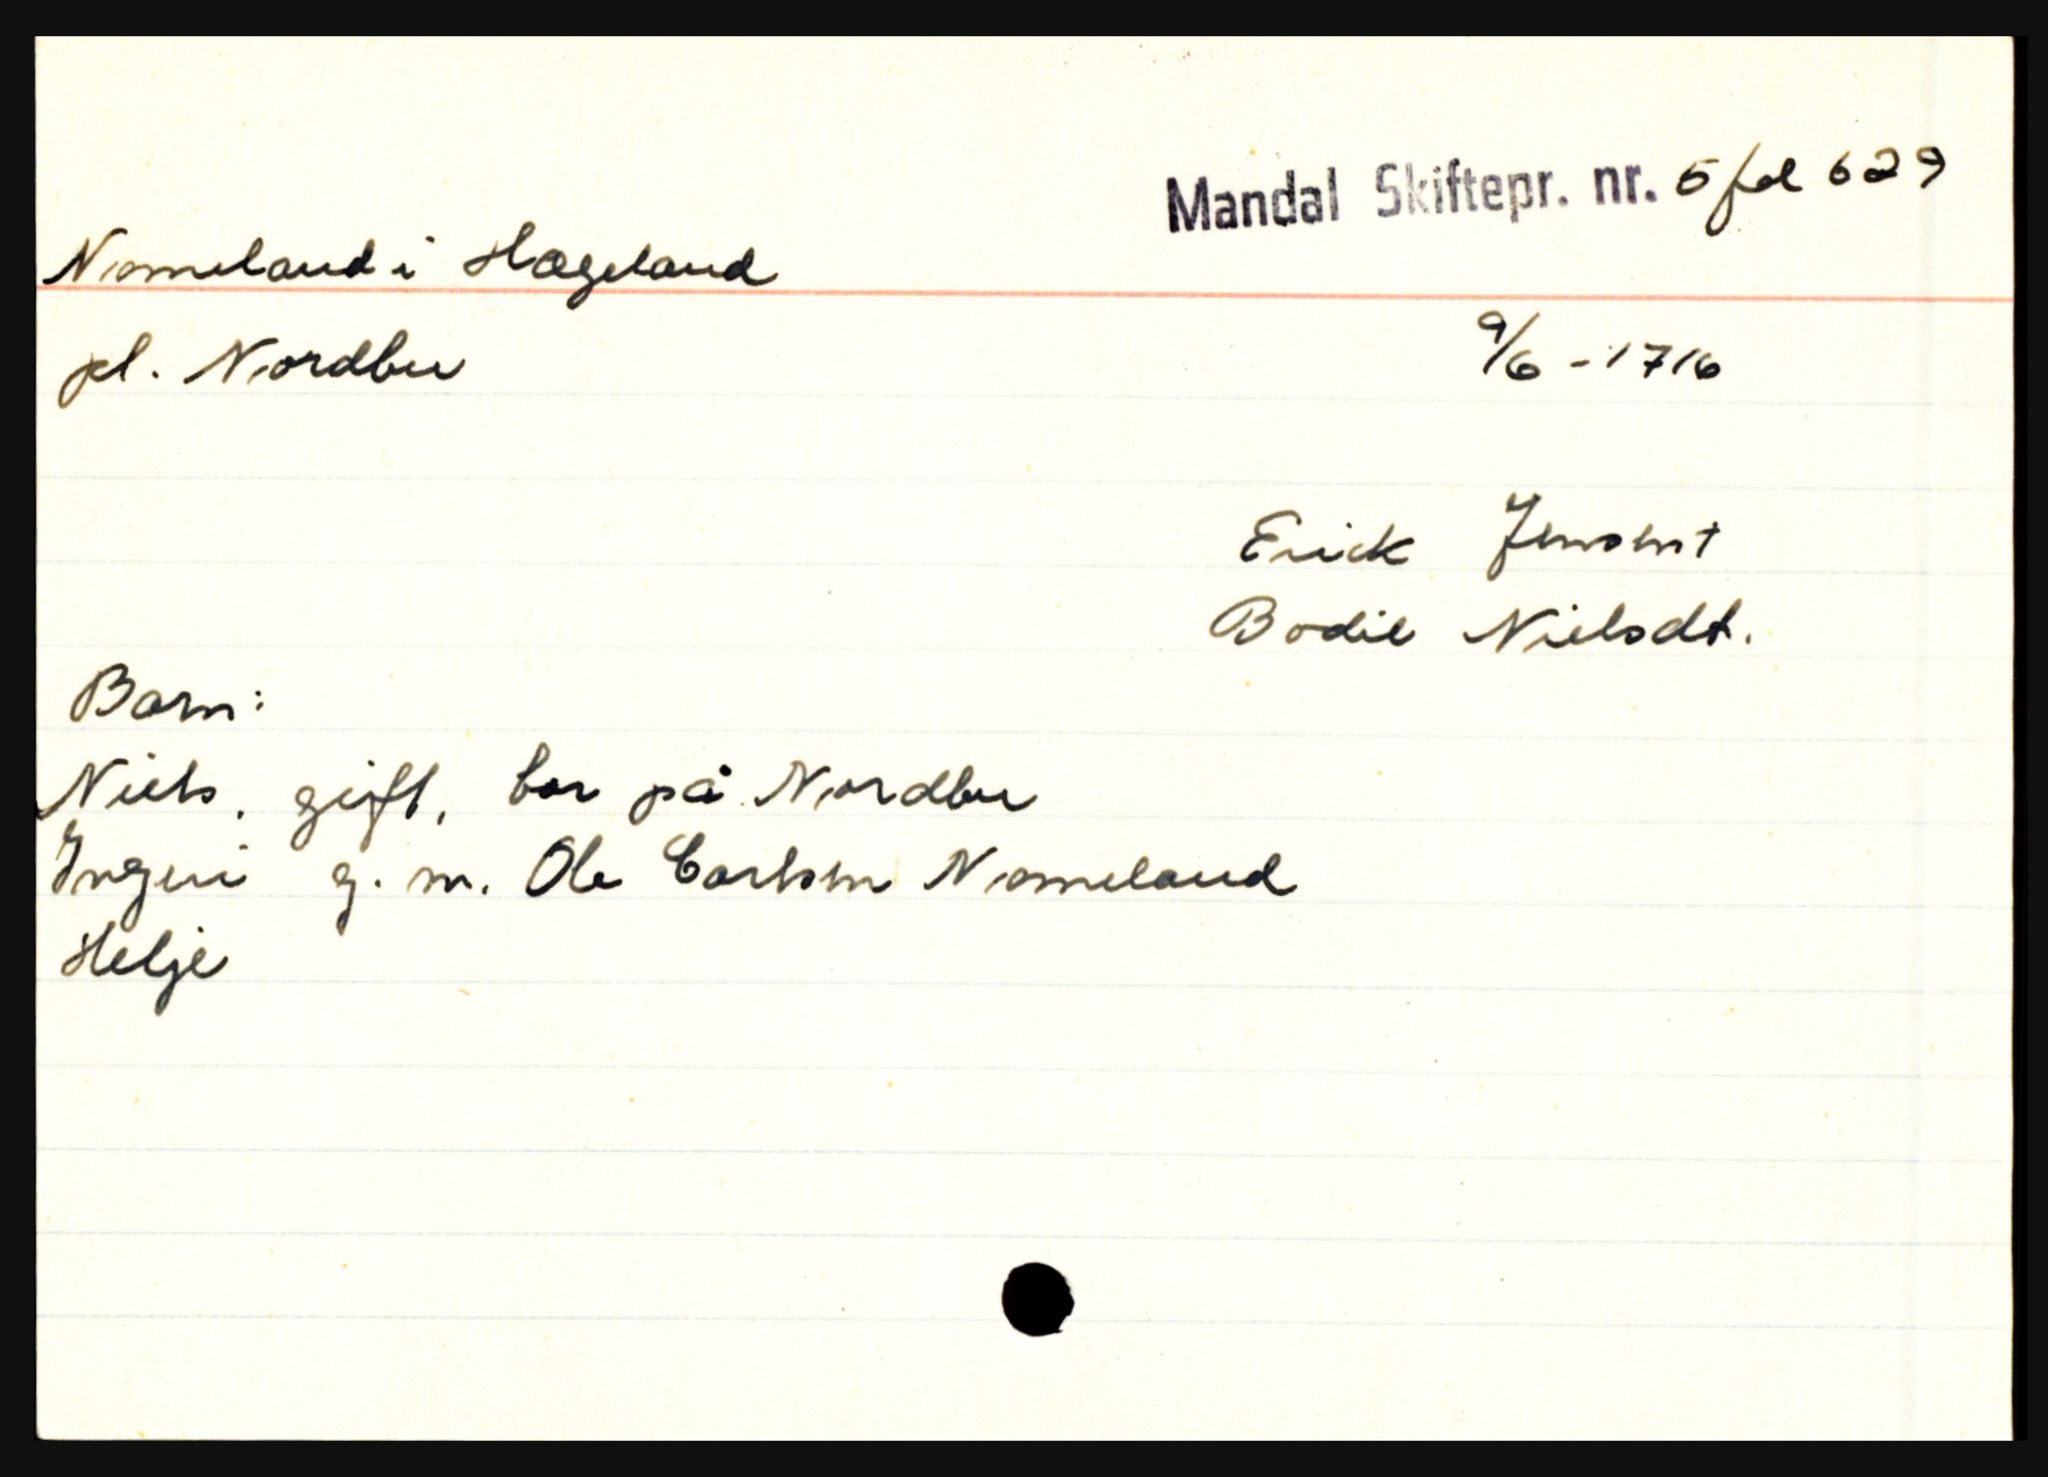 Mandal Skiftepr. nr. 5 fol 629
Nomeland i Hægeland
pl. Nordbu
9/6 - 1716
Erick Jensen †
Bodil Nielsdt.
Barn:
Niels, gift, bor på Nordbu
Ingeri g. m. Ole Carlsen Nomeland
Helje